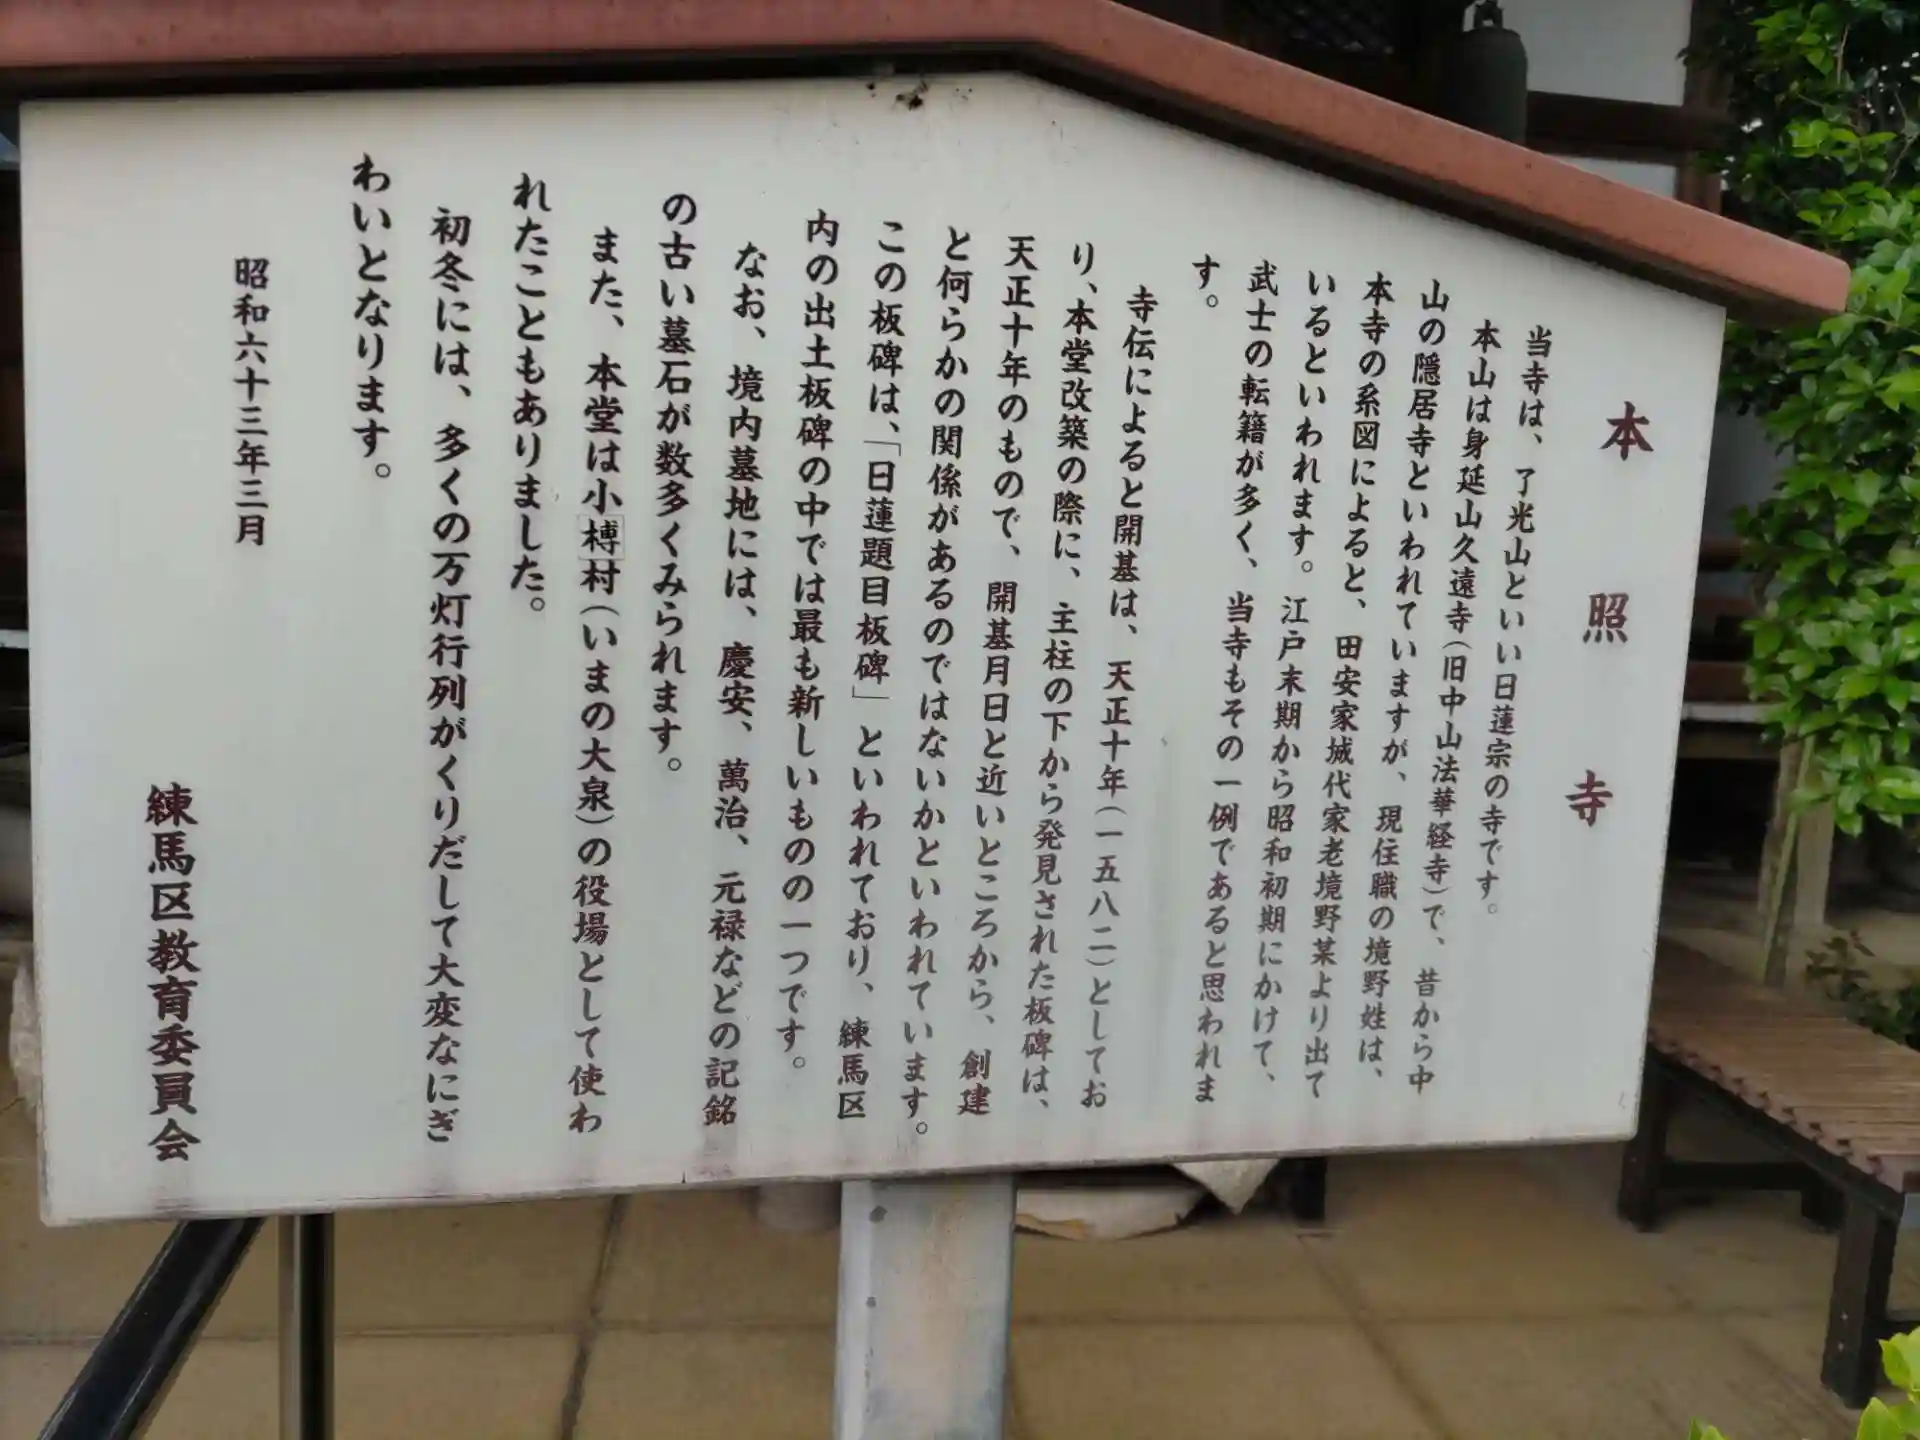 本照寺
当寺は、了光山といい日蓮宗の寺です。
本山は身延山久遠寺（旧中山法華経寺）で、昔から中
山の隠居寺といわれていますが、現住職の境野姓は、
本寺の系図によると、田安家城代家老境野某より出て
いるといわれます。江戸末期から昭和初期にかけて、
武士の転籍が多く、当寺もその一例であると思われま
す。
寺伝によると開基は、天正十年（一五八二）としてお
り、本堂改築の際に、主柱の下から発見された板碑は、
天正十年のもので、開基月日と近いところから、創建
と何らかの関係があるのではないかといわれています。
この板碑は、「日蓮題目板碑」といわれており、練馬区
内の出土板碑の中では最も新しいものの一つです。
なお、境内墓地には、慶安、萬治、元禄などの記銘
の古い墓石が数多くみられます。
また、本堂は小榑村（いまの大泉）の役場として使わ
れたこともありました。
初冬には、多くの万灯行列がくりだして大変なにぎ
わいとなります。
昭和六十三年三月
練馬区教育委員会